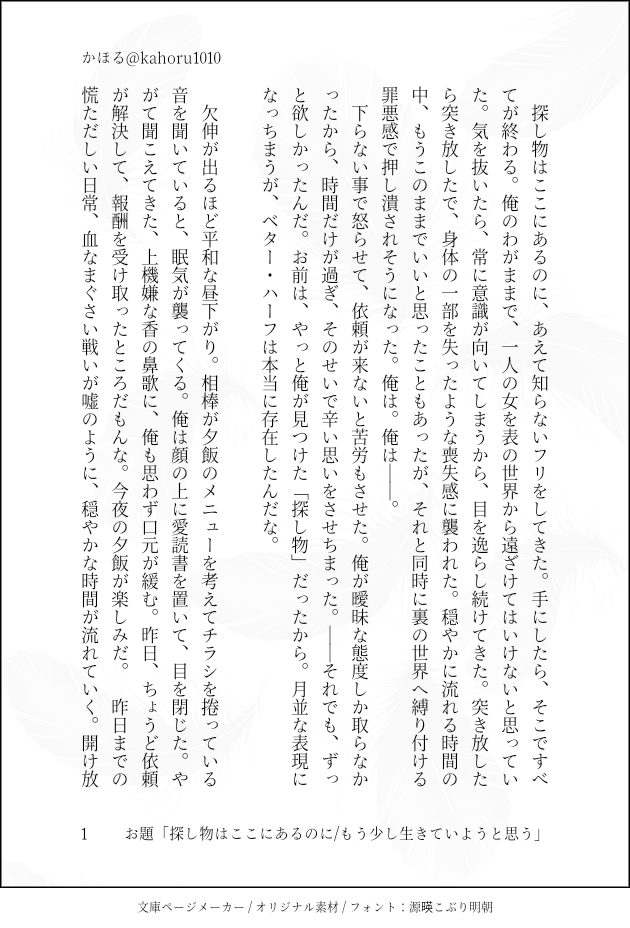 かほる@kahoru1010
探し物はここにあるのに、あえて知らないフリをしてきた。手にしたら、そこですべ
てが終わる。俺のわがままで、一人の女を表の世界から遠ざけてはいけないと思ってい
た。気を抜いたら、常に意識が向いてしまうから、目を逸らし続けてきた。突き放した
ら突き放したで、身体の一部を失ったような喪失感に襲われた。穏やかに流れる時間の
中、もうこのままでいいと思ったこともあったが、それと同時に裏の世界へ縛り付ける
罪悪感で押し潰されそうになった。俺は。俺は――。
下らない事で怒らせて、依頼が来ないと苦労もさせた。俺が曖昧な態度しか取らなか
ったから、時間だけが過ぎ、そのせいで辛い思いをさせちまった。――それでも、ずっ
と欲しかったんだ。お前は、やっと俺が見つけた「探し物」だったから。月並な表現に
なっちまうが、ベター・ハーフは本当に存在したんだな。
欠伸が出るほど平和な昼下がり。相棒が夕飯のメニューを考えてチラシを捲っている
音を聞いていると、眠気が襲ってくる。俺は顔の上に愛読書を置いて、目を閉じた。や
がて聞こえてきた、上機嫌な香の鼻歌に、俺も思わず口元が緩む。昨日、ちょうど依頼
が解決して、報酬を受け取ったところだもんな。今夜の夕飯が楽しみだ。 昨日までの
慌ただしい日常、血なまぐさい戦いが嘘のように、穏やかな時間が流れていく。開け放
1
お題「探し物はここにあるのに/もう少し生きていようと思う」
文庫ページメーカー / オリジナル素材 / フォント：源暎こぶり明朝